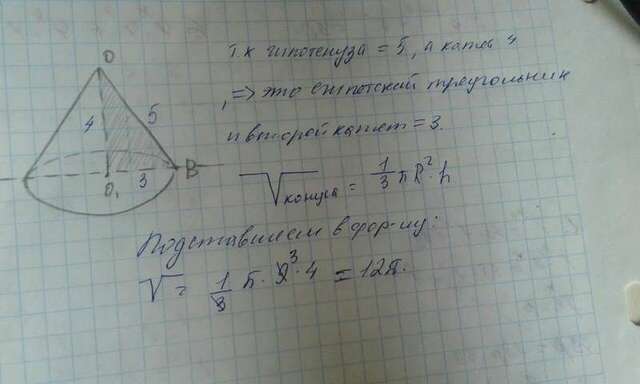 О
4
5
3
В
О₁
т.к гипотенуза = 5, а катет 4
, => это египетский треугольник
и второй катет = 3.
V конуса = 1/3 π R² · h
Подставляем в фор-лу:
V = 1/3 π · 9³ · 4 = 12π.